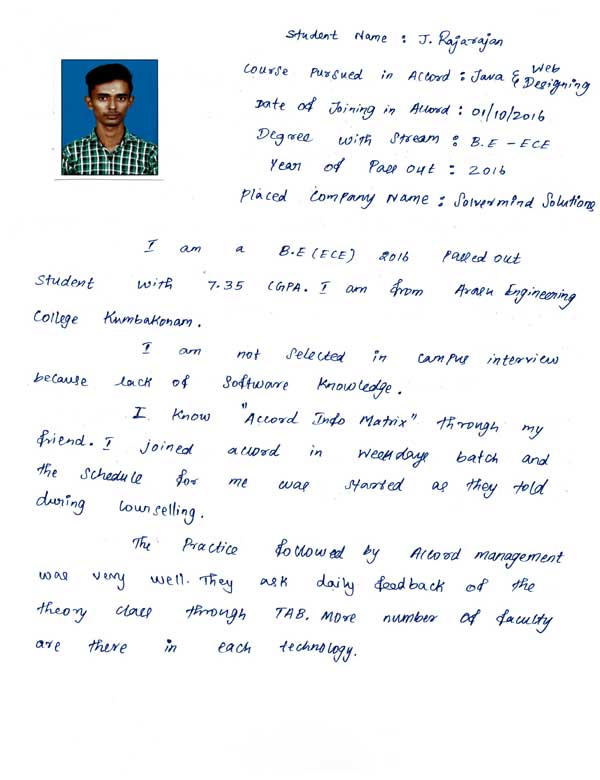 Student Name : J. Rajarajan
Course Pursued in Accord : Java & Web Designing
Date of Joining in Accord : 01/10/2016
Degree with Stream : B.E - ECE
Year of Pass out : 2016
Placed Company Name : Solvermind Solutions
I am a B.E (ECE) 2016 Passed out
Student with 7.35 CGPA. I am from Arasu Engineering
College Kumbakonam.
I am not selected in campus interview
because lack of Software Knowledge.
I know "Accord Info Matrix" through my
friend. I joined accord in weekdays batch and
the schedule for me was started as they told
during counselling.
The Practice followed by Accord management
was very well. They ask daily feedback of the
theory class through TAB. More number of faculty
are there in each technology.